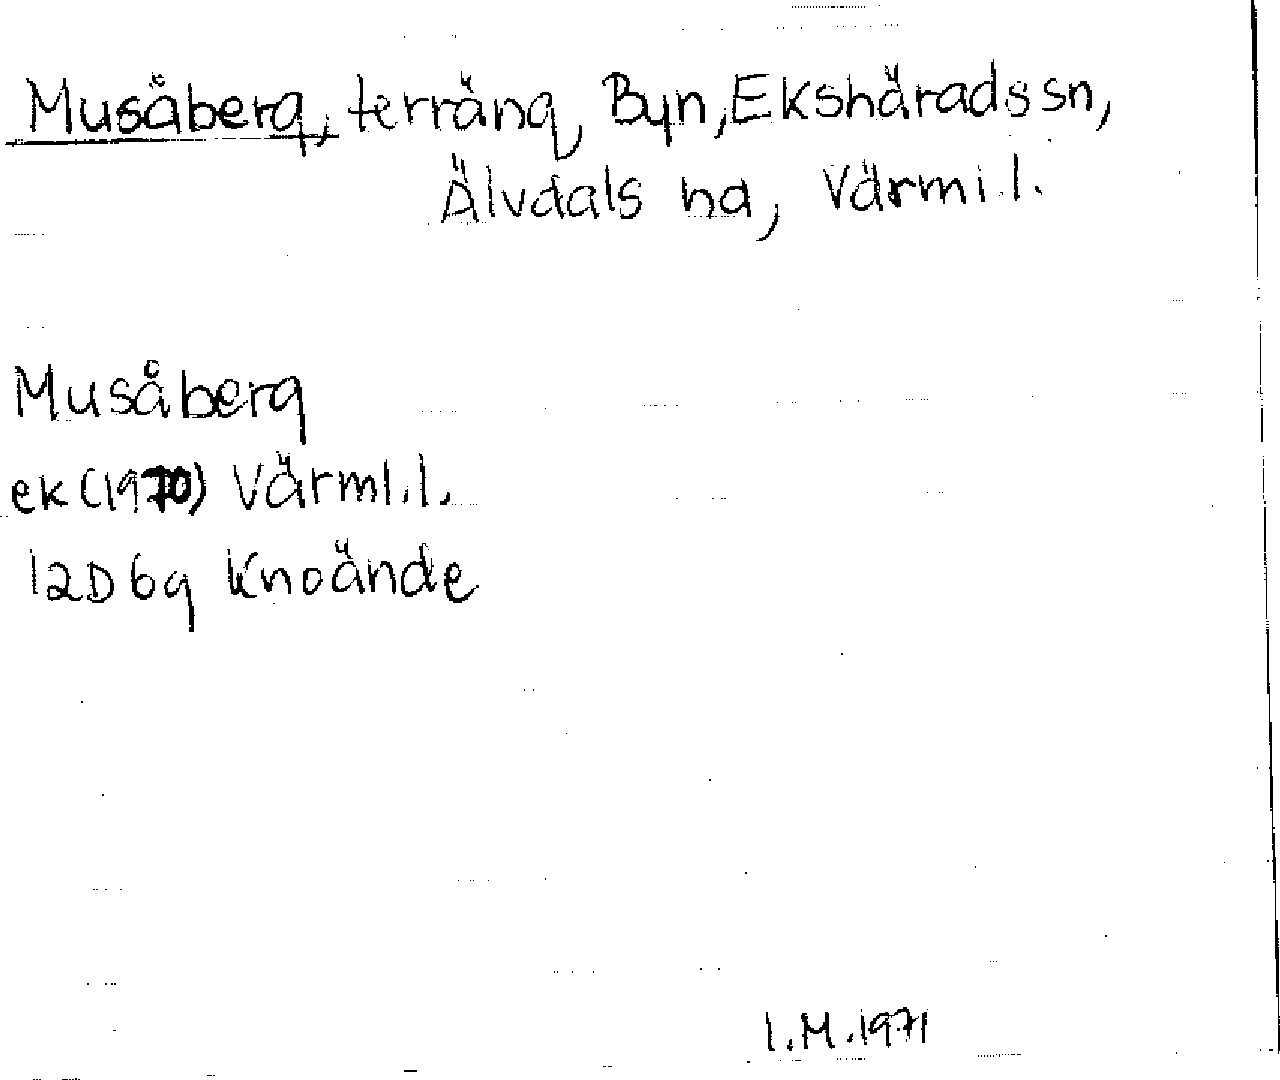 Musåberg, terräng, Byn, Ekshärads sn,
Älvdals hd, Värml.l.
Musåberg
ek (1970) Värml.l.
12D6g Knoände
I.M. 1971